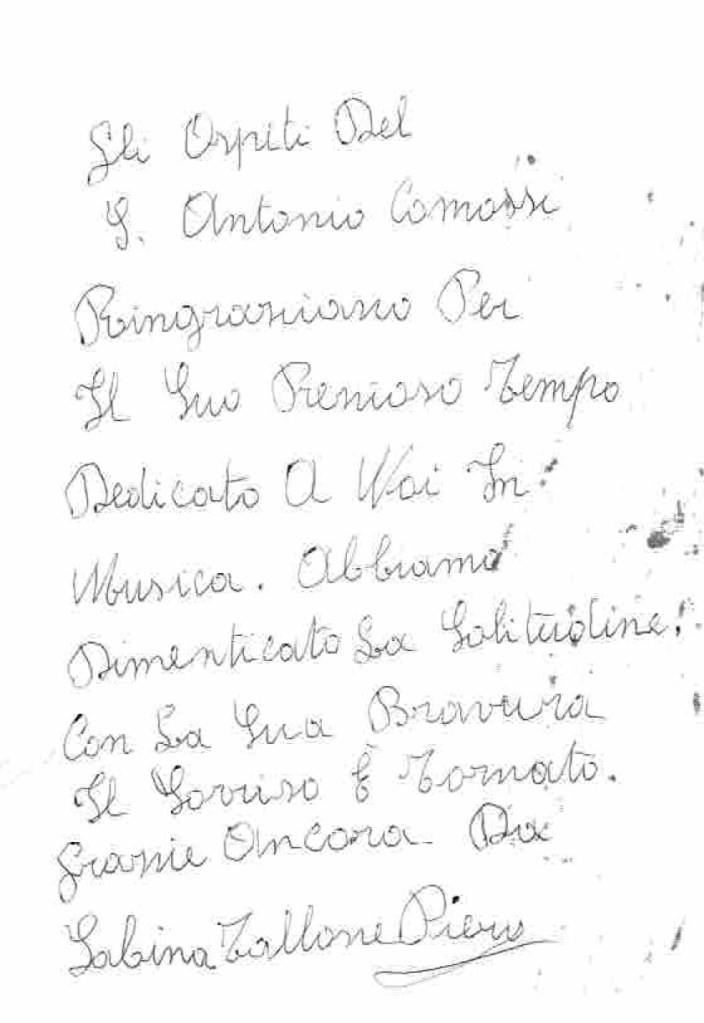 Gli Ospiti Del
S. Antonio Comossi
Ringraziano Per
Il Suo Prezioso Tempo
Dedicato A Noi In
Musica. Abbiamo
Dimenticato La Solitudine.
Con La Sua Bravura
Il Sorriso È Tornato.
Grazie Ancora Da
Sabina Tallone Piero